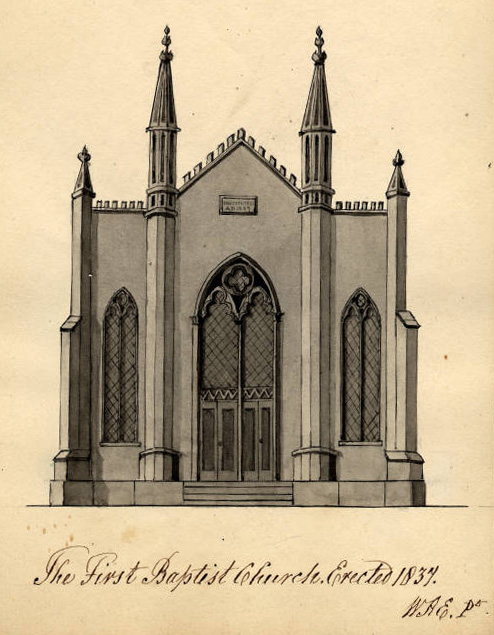 The First Baptist Church. Erected 1837.
W.A.E. P